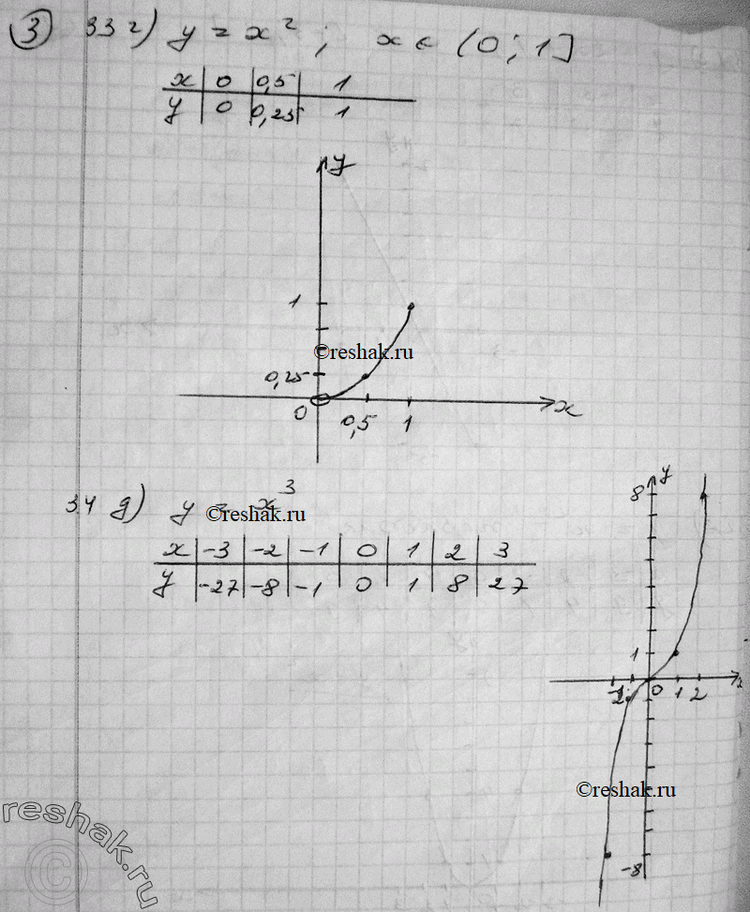 ③ 33 г) y = x²; x ∈ (0; 1]
x | 0 | 0,5 | 1
y | 0 | 0,25 | 1
y
1
©reshak.ru
0,25
0 0,5 1 x
34 д) y = x³
©reshak.ru
x | -3 | -2 | -1 | 0 | 1 | 2 | 3
y | -27 | -8 | -1 | 0 | 1 | 8 | 27
y
8
1
0 1 2
©reshak.ru
-8
reshak.ru
©